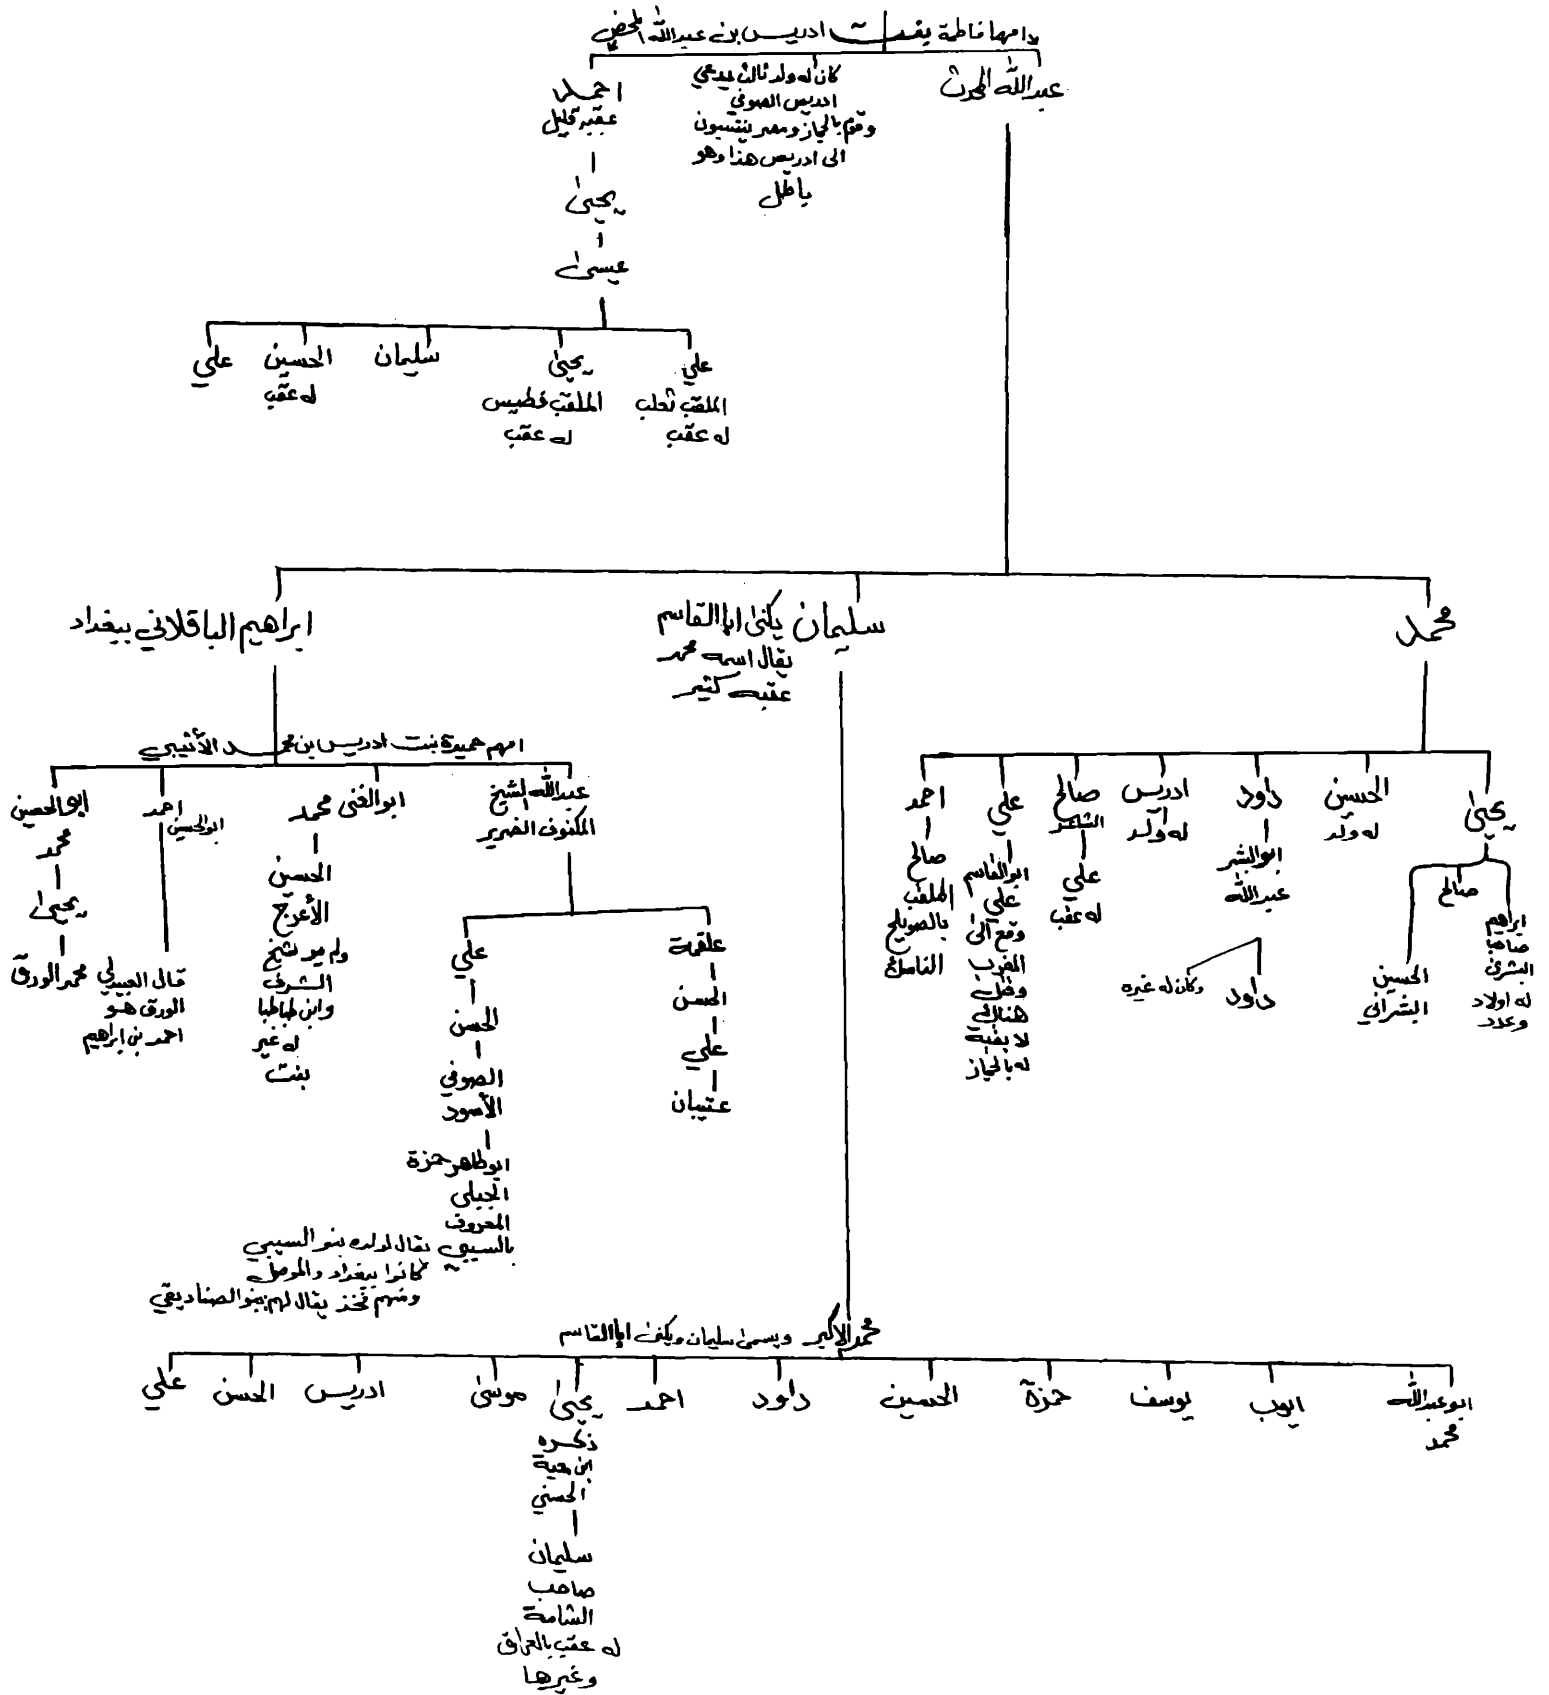 امها فاطمة بنت ادريس بن عبدالله المحض
عبدالله المحدث
كان له ولد ثالث يدعي
ادريس الصوفي
وقوم بالحجاز ومصر ينتسبون
الى ادريس هذا وهو
باطل
احمد
عقبه قليل
يحيى
عيسى
علي
الملقب ثعلب
له عقب
يحيى
الملقب فطيس
له عقب
سليمان
الحسين
له عقب
علي
محمد
سليمان يكنى ابا القاسم
يقال اسمه محمد
عقبه كثير
ابراهيم الباقلاني ببغداد
يحيى
ابراهيم
صاحب
له اولاد
وعدد
صالح
الحسين
الشراني
الحسن
له ولد
داود
ابوالبشر
عبدالله
داود
وكان له غيره
ادريس
له ولد
صالح
الشاعر
علي
له عقب
علي
ابوالقاسم
علي
وقع الى
المغرب
هناك
لا بقية
له بالحجاز
احمد
صالح
الملقب
بالصويلح
الناسك
امهم حميدة بنت ادريس بن محمد
عبدالله الشيخ
المكفوف الضرير
علقمة
الحسن
علي
عتيبان
علي
الحسن
الصوفي
الأسود
ابوطاهر حمزة
الجبلي
المعروف
بالسيبي يقال لولده بنو السيبي
كانوا ببغداد والموصل
ومنهم فخذ يقال لهم بنو الصناديقي
ابوالغنى
محمد
الحسين
الأعرج
وابن طباطبا
له غير
بنت
احمد
ابوالحسين
قال العبيدلي
الورق هو
احمد بن ابراهيم
ابوالحسين
محمد
يحيى
محمد الورق
محمد الاكبر ويسمى سليمان ويكنى ابا القاسم
ابوعبدالله
محمد
ايوب
يوسف
حمزة
الحسين
داود
احمد
يحيى
ذكره
الحسني
سليمان
صاحب
الشامة
له عقب بالعراق
وغيرها
موسى
ادريس
الحسن
علي